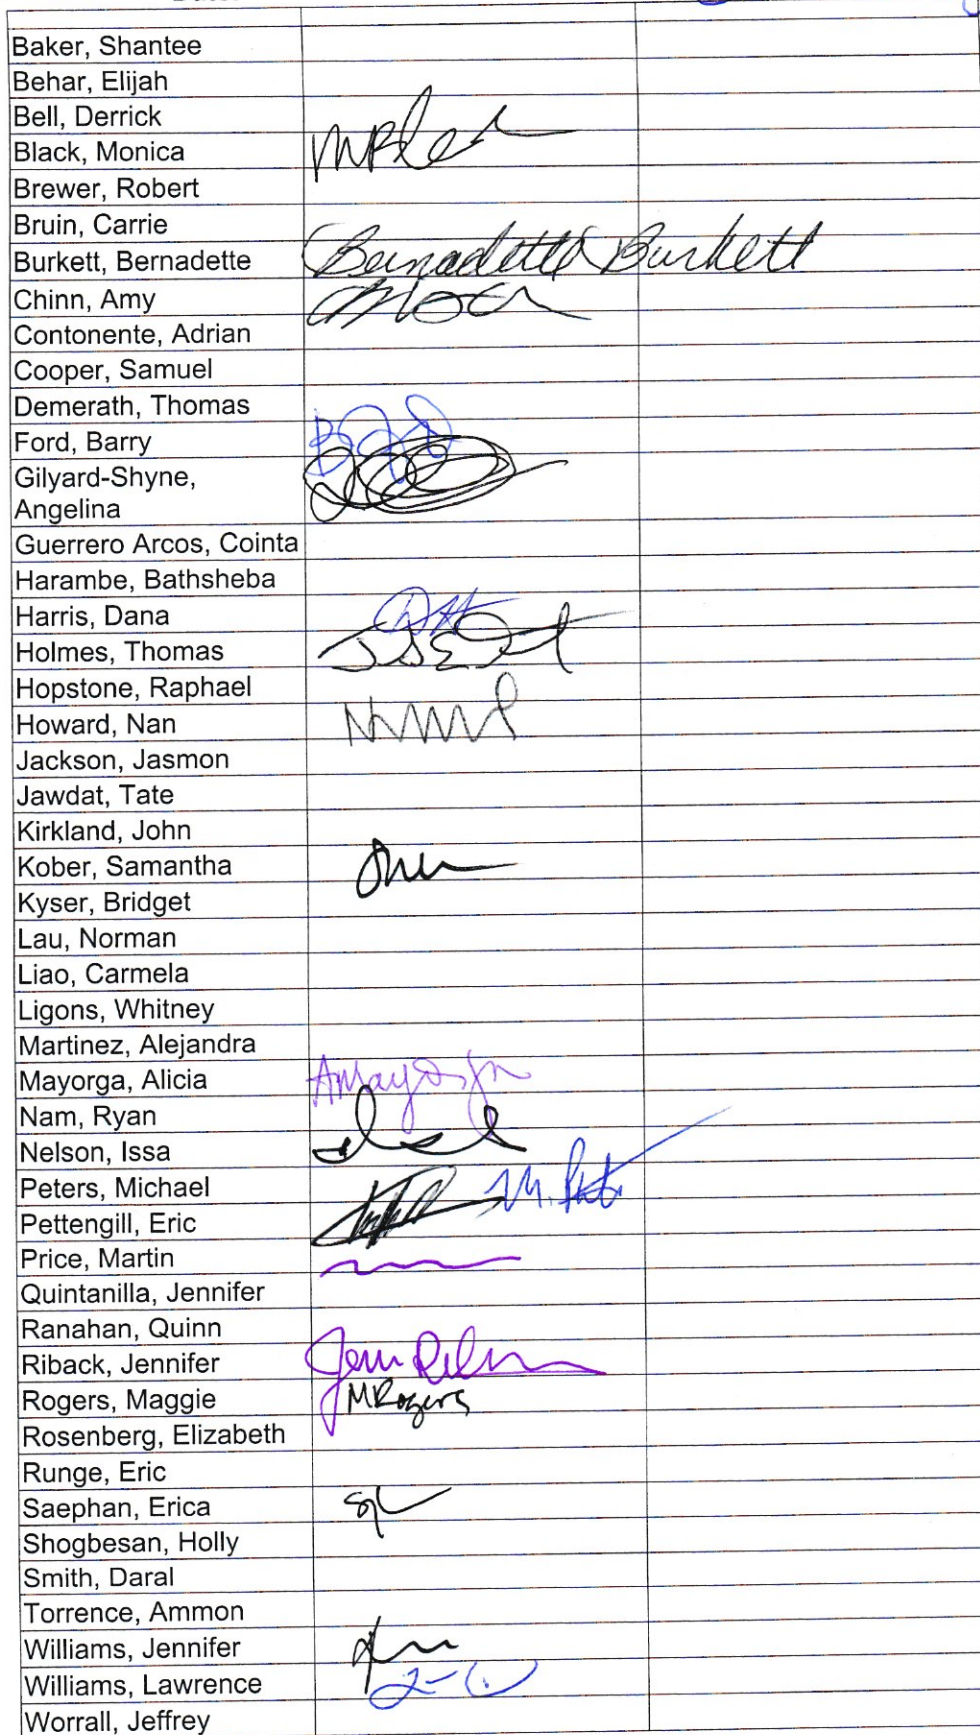 Baker, Shantee
Behar, Elijah
Bell, Derrick
Black, Monica
Brewer, Robert
Bruin, Carrie
Burkett, Bernadette Bernadette Burkett
Chinn, Amy
Contonente, Adrian
Cooper, Samuel
Demerath, Thomas
Ford, Barry
Gilyard-Shyne,
Angelina
Guerrero Arcos, Cointa
Harambe, Bathsheba
Harris, Dana
Holmes, Thomas
Hopstone, Raphael
Howard, Nan
Jackson, Jasmon
Jawdat, Tate
Kirkland, John
Kober, Samantha
Kyser, Bridget
Lau, Norman
Liao, Carmela
Ligons, Whitney
Martinez, Alejandra
Mayorga, Alicia
Nam, Ryan
Nelson, Issa
Peters, Michael
Pettengill, Eric
Price, Martin
Quintanilla, Jennifer
Ranahan, Quinn
Riback, Jennifer
Rogers, Maggie MRogers
Rosenberg, Elizabeth
Runge, Eric
Saephan, Erica
Shogbesan, Holly
Smith, Daral
Torrence, Ammon
Williams, Jennifer
Williams, Lawrence
Worrall, Jeffrey